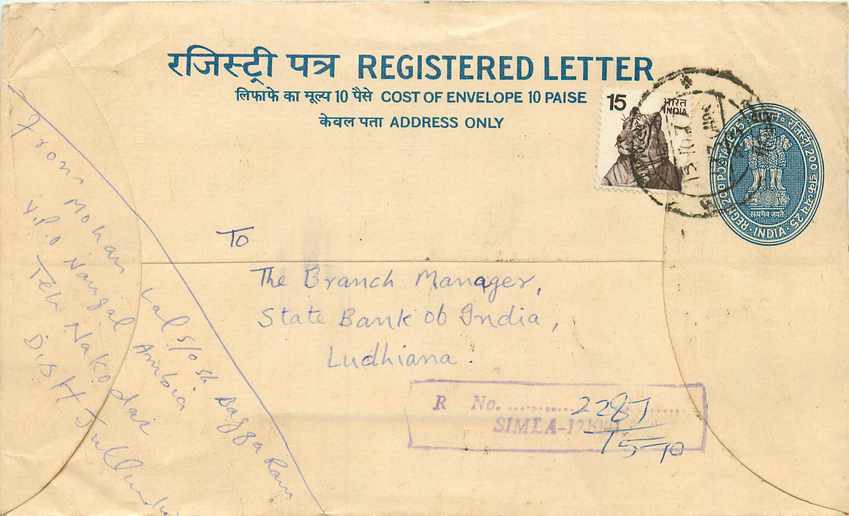 रजिस्ट्री पत्र REGISTERED LETTER
लिफाफे का मूल्य 10 पैसे COST OF ENVELOPE 10 PAISE
केवल पता ADDRESS ONLY
15 भारत
INDIA
सत्यमेव जयते
INDIA
From Mohan Lal S/o Sh Dagga Ram
V.P.O Nangal Ambia
Teh Nakodar
Distt Jullundur
To
The Branch Manager,
State Bank of India,
Ludhiana.
R No. 2287
SIMLA-171001
15-10